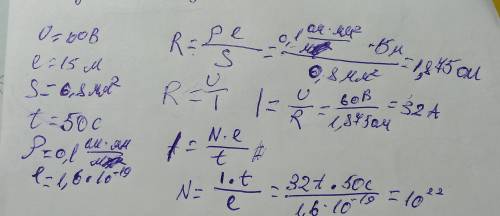 U=60В
l=15м
S=0,8мм²
t=50с
ρ=0,1 ом·мм/м
e=1,6·10⁻¹⁹
R=ρl/S=0,1 ом·мм²/м ·15м/0,8мм²=1,875ом
R=U/I I=U/R=60В/1,875ом=32А
I=N·e/t
N=I·t/e=32А·50с/1,6·10⁻¹⁹=10²²